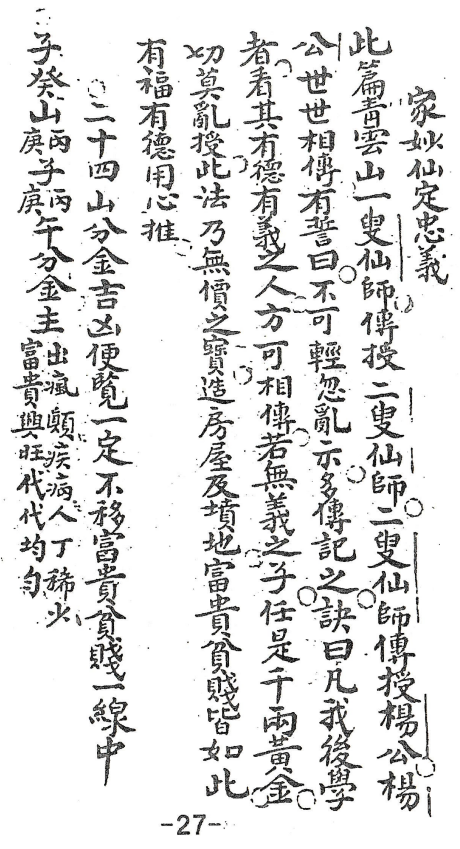 家妙仙定忠義
此篇青雲山一叟仙師傳授二叟仙師二叟仙師傳授楊公楊
公世世相傳有誓曰不可輕忽亂示多傳記之訣曰凡我後學
者看其有德有義之人方可相傳若無義之子任是千兩黃金
切莫亂授此法乃無價之寶造房屋及墳地富貴貧賤皆如此
有福有德用心推
二十四山分金吉凶便覽一定不移富貴貧賤一線中
子癸山丙子丙午分金主出瘋顛疾病人丁稀少
庚庚富貴興旺代代均勻
-27-